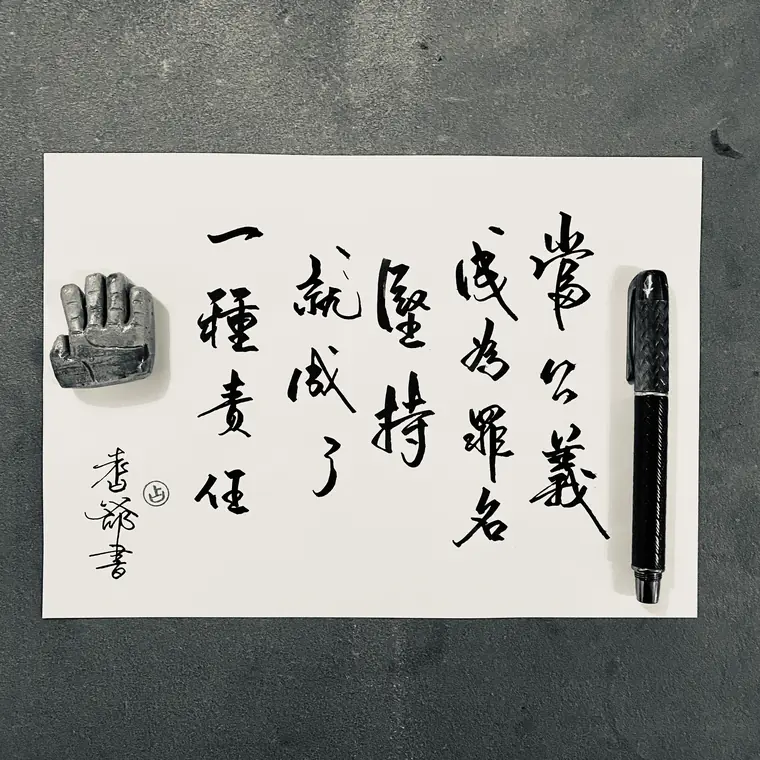 當公義
成為罪名
堅持
就成了
一種責任
書